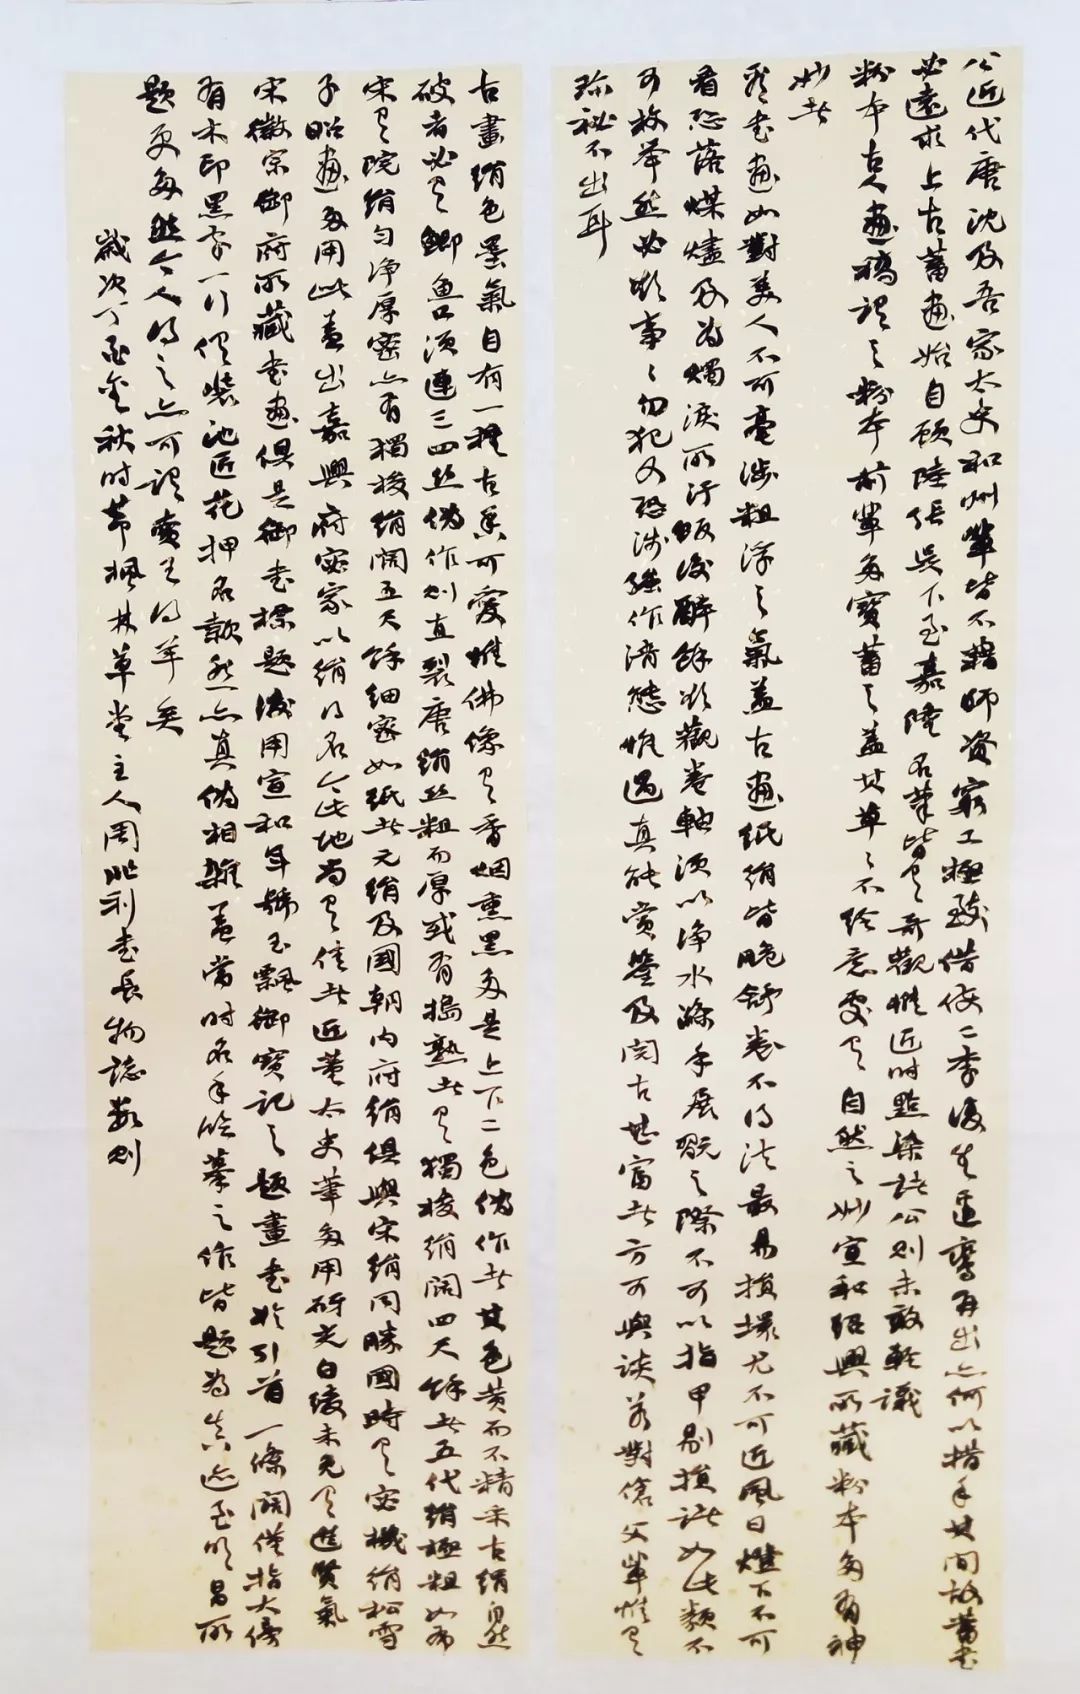 公近代唐沈及吾家太史和州輩皆不藉師資窮工極致借使二李復生邊鸞再出亦何以措手其間故蓄書
必遠求上古蓄畫始自顧陸張吳下至嘉隆名筆皆有奇觀惟近時點染諸公則未敢輕議
粉本古人畫稿謂之粉本前輩多寶蓄之蓋其草草不經意處有自然之妙宣和紹興所藏粉本多有神
妙者
看書畫如對美人不可毫涉粗浮之氣蓋古畫紙絹皆脆舒卷不得法最易損壞尤不可近風日燈下不可
看恐落煤燼及為燭淚所汙飯後醉餘欲觀卷軸須以淨水滌手展玩之際不可以指甲剔損諸如此類不
可枚舉然必欲事事勿犯又恐涉強作清態惟遇真能賞鑒及閱古甚富者方可與談若對傖父輩惟有
珍祕不出耳
古畫絹色墨氣自有一種古香可愛惟佛像有香烟熏黑多是上下二色偽作者其色黃而不精采古絹自然
破者必有鯽魚口須連三四絲偽作則直裂唐絹絲粗而厚或有搗熟者有獨梭絹闊四尺餘者五代絹極粗如布
宋有院絹勻淨厚密亦有獨梭絹闊五尺餘細密如紙者元絹及國朝內府絹俱與宋絹同勝國時有宓機絹松雪
子昭畫多用此蓋出嘉興府宓家以絹得名今此地尚有佳者近董太史筆多用砑光白綾未免有進賢氣
宋徽宗御府所藏書畫俱是御書標題後用宣和年號玉瓢御寶記之題畫書於引首一條闊僅指大傍
有木印黑字一行俱裝池匠花押名款然亦真偽相雜蓋當時名手臨摹之作皆題為真迹至明昌所
題更多然今人得之亦可謂買王得羊矣
歲次丁酉金秋時節楓林草堂主人周順利書長物誌數則